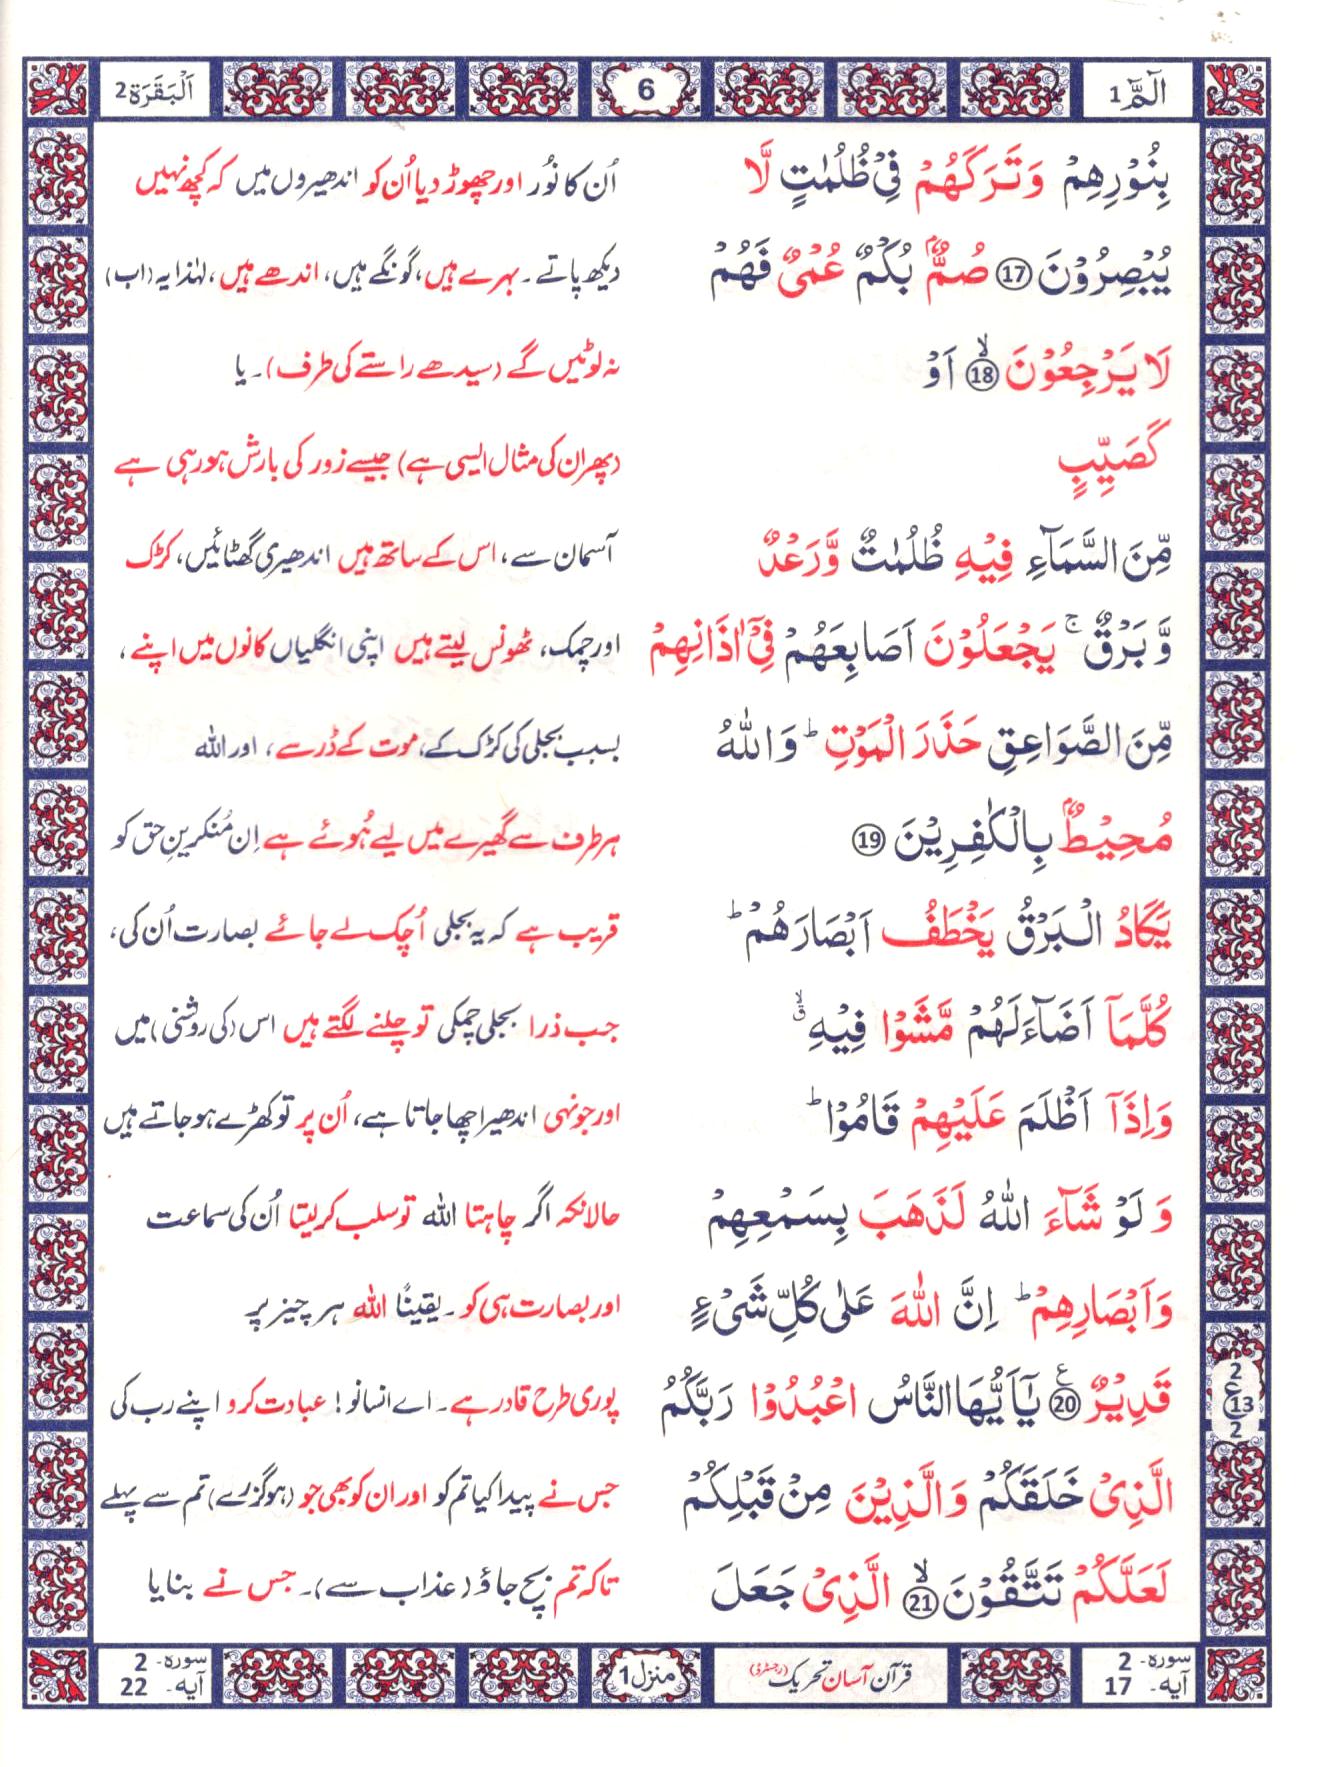 الٓمّٓ 1
6
اَلْبَقَرَة 2
بِنُوْرِهِمْ وَتَرَكَهُمْ فِیْ ظُلُمٰتٍ لَّا اُن کا نُور اور چھوڑ دیا اُن کو اندھیروں میں کہ کچھ نہیں
یُبْصِرُوْنَ ⑰ صُمٌّۢ بُكْمٌ عُمْیٌ فَهُمْ دیکھ پاتے۔ بہرے ہیں، گونگے ہیں، اندھے ہیں، لہٰذا یہ (اب)
لَا یَرْجِعُوْنَ ⑱ۙ اَوْ نہ لوٹیں گے (سیدھے راستے کی طرف)۔ یا
كَصَیِّبٍ (پھر ان کی مثال ایسی ہے) جیسے زور کی بارش ہو رہی ہے
مِّنَ السَّمَآءِ فِیْهِ ظُلُمٰتٌ وَّرَعْدٌ آسمان سے، اس کے ساتھ ہیں اندھیری گھٹائیں، کڑک
وَّبَرْقٌ ۚ یَجْعَلُوْنَ اَصَابِعَهُمْ فِیْۤ اٰذَانِهِمْ اور چمک، ٹھونس لیتے ہیں اپنی انگلیاں کانوں میں اپنے،
مِّنَ الصَّوَاعِقِ حَذَرَ الْمَوْتِ ؕ وَاللّٰهُ بسبب بجلی کی کڑک کے، موت کے ڈر سے، اور اللہ
مُحِیْطٌۢ بِالْكٰفِرِیْنَ ⑲ ہر طرف سے گھیرے میں لیے ہُوئے ہے اِن مُنکرینِ حق کو
یَكَادُ الْبَرْقُ یَخْطَفُ اَبْصَارَهُمْ ؕ قریب ہے کہ یہ بجلی اُچک لے جائے بصارت اُن کی،
كُلَّمَاۤ اَضَآءَ لَهُمْ مَّشَوْا فِیْهِ ۙۗ جب ذرا بجلی چمکی تو چلنے لگتے ہیں اس (کی روشنی) میں
وَاِذَاۤ اَظْلَمَ عَلَیْهِمْ قَامُوْا ؕ اور جونہی اندھیرا چھا جاتا ہے، اُن پر تو کھڑے ہو جاتے ہیں
وَلَوْ شَآءَ اللّٰهُ لَذَهَبَ بِسَمْعِهِمْ حالانکہ اگر چاہتا اللہ تو سلب کر لیتا اُن کی سماعت
وَاَبْصَارِهِمْ ؕ اِنَّ اللّٰهَ عَلٰى كُلِّ شَیْءٍ اور بصارت ہی کو۔ یقیناً اللہ ہر چیز پر
قَدِیْرٌ ⑳ۧ یٰۤاَیُّهَا النَّاسُ اعْبُدُوْا رَبَّكُمُ پوری طرح قادر ہے۔ اے انسانو! عبادت کرو اپنے رب کی
2
ع
13
2
الَّذِیْ خَلَقَكُمْ وَالَّذِیْنَ مِنْ قَبْلِكُمْ جس نے پیدا کیا تم کو اور ان کو بھی جو (ہو گزرے) تم سے پہلے
لَعَلَّكُمْ تَتَّقُوْنَ ㉑ۙ الَّذِیْ جَعَلَ تاکہ تم بچ جاؤ (عذاب سے)۔ جس نے بنایا
سورہ - 2
آیہ - 17
قرآن آسان تحریک (رجسٹرڈ)
منزل 1
سورہ - 2
آیہ - 22